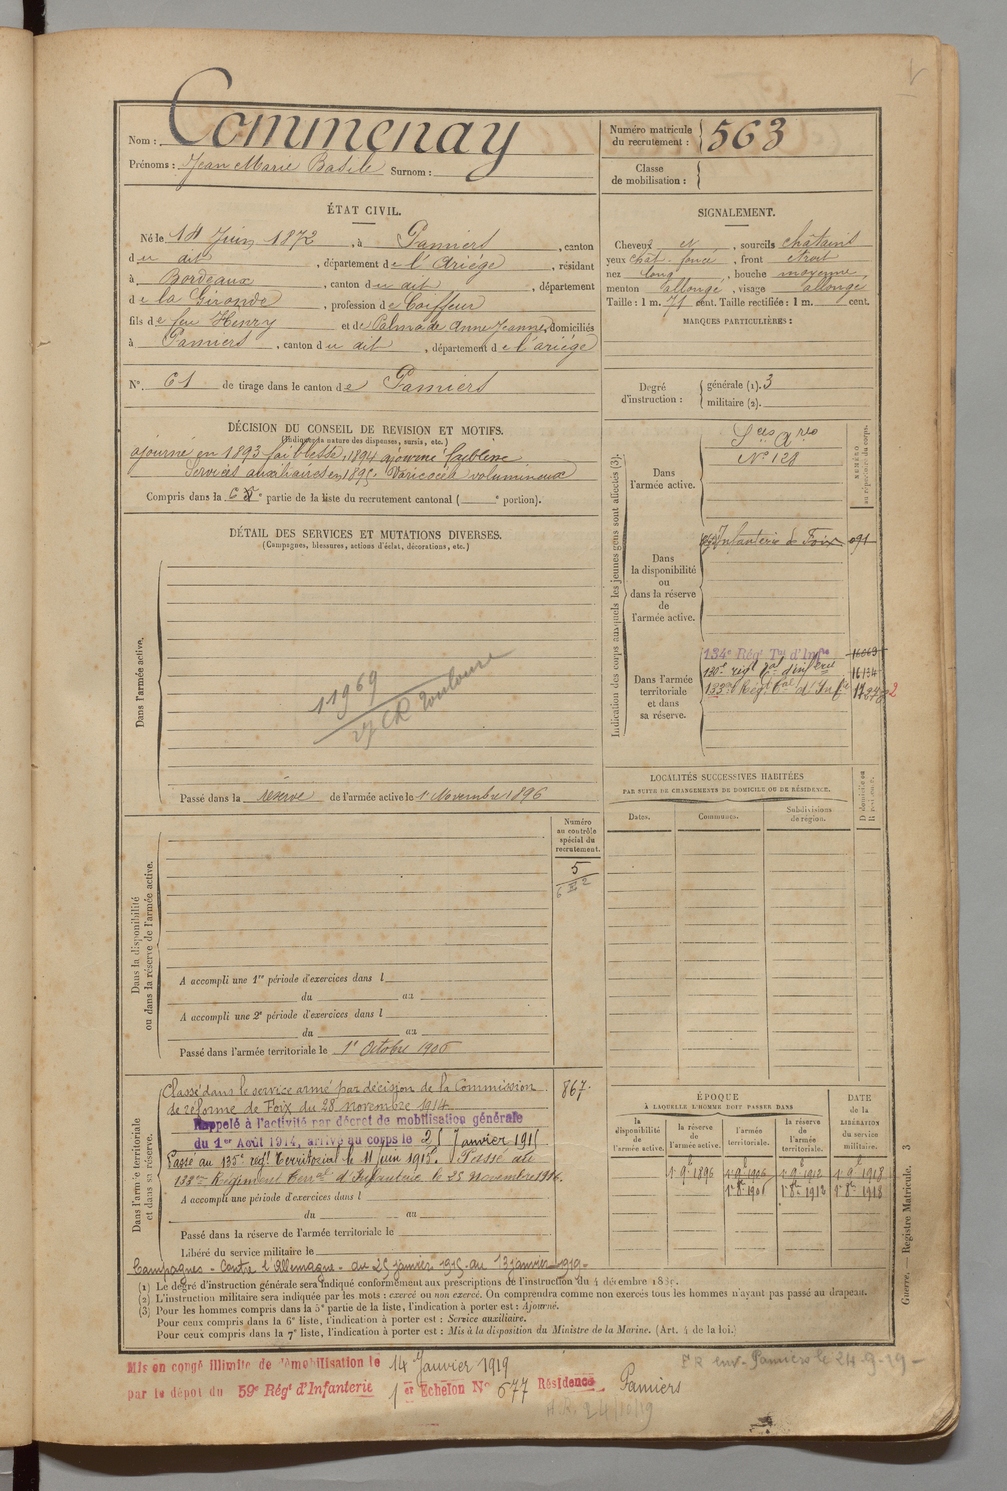 Nom : Commenay
Prénoms : Jean Marie Basile Surnom :
Numéro matricule du recrutement : 563
Classe de mobilisation :
ÉTAT CIVIL.
Né le 14 Juin 1872, à Pamiers, canton
du dit, département de l'Ariège, résidant
à Bordeaux, canton du dit, département
de la Gironde, profession de Coiffeur
fils de feu Henry et de Palmade Anne Jeanne, domiciliés
à Pamiers, canton du dit, département de l'ariège
N°. 61 de tirage dans le canton de Pamiers
SIGNALEMENT.
Cheveux et, sourcils châtains
yeux chat. foncé, front étroit
nez long, bouche moyenne,
menton allongé, visage allongé
Taille : 1 m. 71 cent. Taille rectifiée : 1 m. cent.
MARQUES PARTICULIÈRES :
Degré d'instruction : générale (1). 3
militaire (2).
DÉCISION DU CONSEIL DE REVISION ET MOTIFS.
(Indiquer la nature des dispenses, sursis, etc.)
ajourné en 1893 faiblesse, 1894 ajourné faiblesse
Services auxiliaires en 1895. Varicocèle volumineux
Compris dans la 6e partie de la liste du recrutement cantonal ( e portion).
DÉTAIL DES SERVICES ET MUTATIONS DIVERSES.
(Campagnes, blessures, actions d'éclat, décorations, etc.)
Dans l'armée active.
11969
CR Toulouse
Passé dans la réserve de l'armée active le 1 Novembre 1896
Indication des corps auxquels les jeunes gens sont affectés (3).
NUMÉRO au répertoire du corps.
Dans l'armée active.
Sces Ares
N° 128
Dans la disponibilité ou dans la réserve de l'armée active.
Infanterie de Foix 091
Dans l'armée territoriale et dans sa réserve.
134e Rég Tal d'Infie
135e régt tal d'inferie 16134
133me Régt tal d'Infie
LOCALITÉS SUCCESSIVES HABITÉES
PAR SUITE DE CHANGEMENTS DE DOMICILE OU DE RÉSIDENCE.
Dates. Communes. Subdivisions de région. D domicile ou R résidence.
Numéro au contrôle spécial du recrutement.
5
Dans la disponibilité ou dans la réserve de l'armée active.
A accompli une 1re période d'exercices dans l
du au
A accompli une 2e période d'exercices dans l
du au
Passé dans l'armée territoriale le 1r Octobre 1906
Dans l'armée territoriale et dans sa réserve.
Classé dans le service armé par décision de la Commission 867.
de réforme de Foix du 28 novembre 1914
Rappelé à l'activité par décret de mobilisation générale
du 1er Août 1914, arrivé au corps le 25 Janvier 1915
Passé au 135e régt territorial le 11 juin 1915. Passé au
133me Régiment Terral d'Infanterie le 25 novembre 1916.
A accompli une période d'exercices dans l
du au
Passé dans la réserve de l'armée territoriale le
Libéré du service militaire le
Campagnes - Contre l'Allemagne - du 25 janvier 1915 au 13 janvier 1919.
ÉPOQUE
À LAQUELLE L'HOMME DOIT PASSER DANS
la disponibilité de l'armée active. la réserve de l'armée active. l'armée territoriale. la réserve de l'armée territoriale.
DATE de la LIBÉRATION du service militaire.
1r 9b 1896 1r 9b 1906 1r 9b 1912 1r 9b 1918
1r 8re 1906 1r 8re 1912 1r 8re 1918
(1) Le degré d'instruction générale sera indiqué conformément aux prescriptions de l'instruction du 4 décembre 1889.
(2) L'instruction militaire sera indiquée par les mots : exercé ou non exercé. On comprendra comme non exercés tous les hommes n'ayant pas passé au drapeau.
(3) Pour les hommes compris dans la 5e partie de la liste, l'indication à porter est : Ajourné.
Pour ceux compris dans la 6e liste, l'indication à porter est : Service auxiliaire.
Pour ceux compris dans la 7e liste, l'indication à porter est : Mis à la disposition du Ministre de la Marine. (Art. 4 de la loi.)
Guerre. — Registre Matricule. 3
Mis en congé illimité de démobilisation le 14 Janvier 1919
par le dépôt du 59e Régt d'Infanterie 1er Echelon N° 677 Résidence Pamiers
FR env. Pamiers le 24-9-19 -